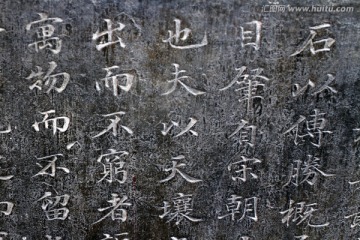 石以傳勝概
目肇自宗朝
也夫以天壤
出而不窮者
寓物而不留
www.huitu.com